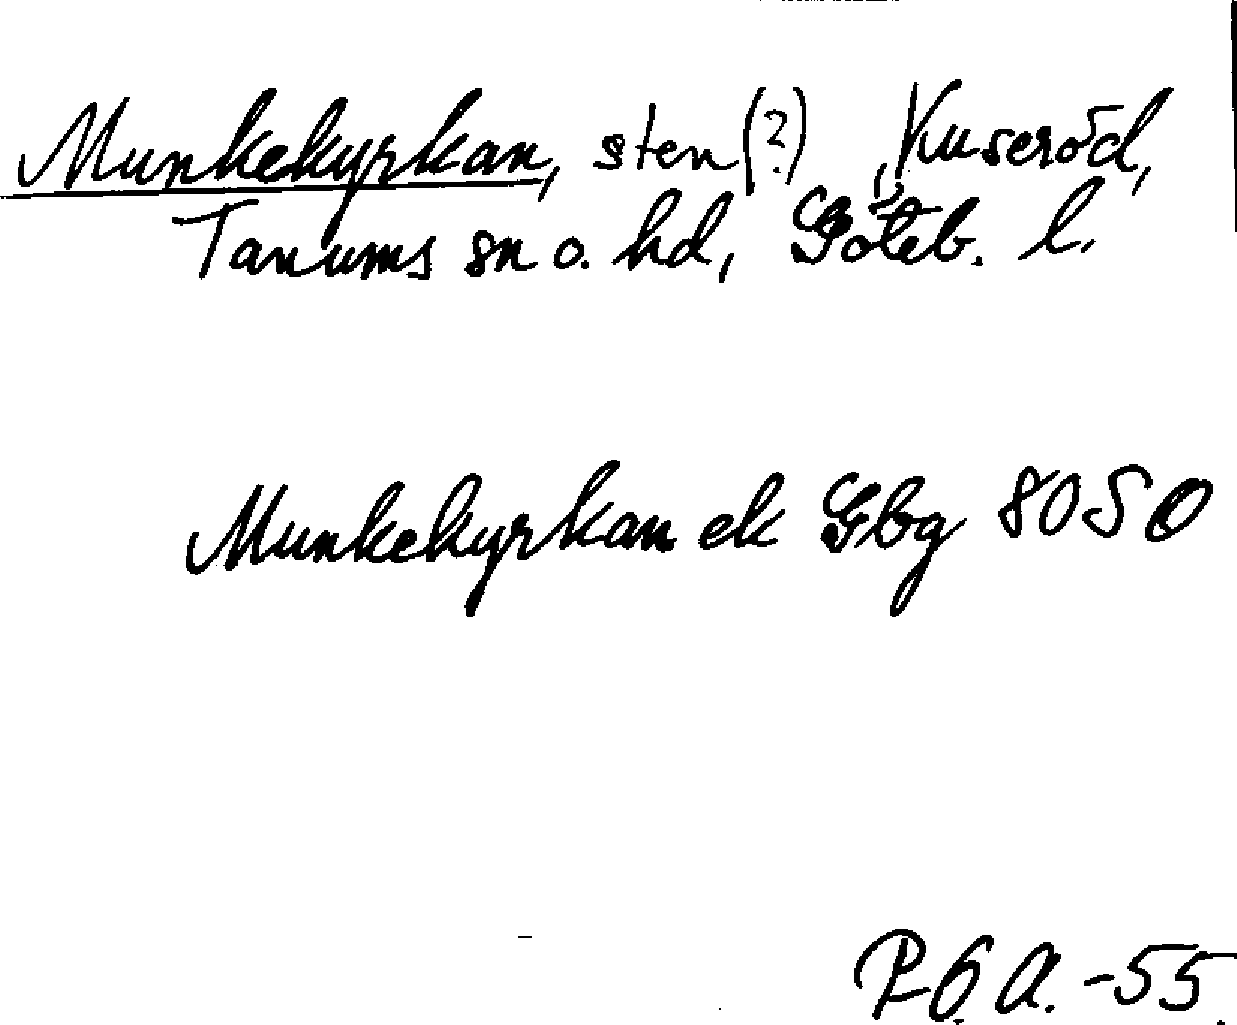 Munkekyrkan, sten (?), Kuseröd,
Tanums sn o. hd, Göteb. l.
Munkekyrkan ek Gbg 8050
R.G.A. -55.